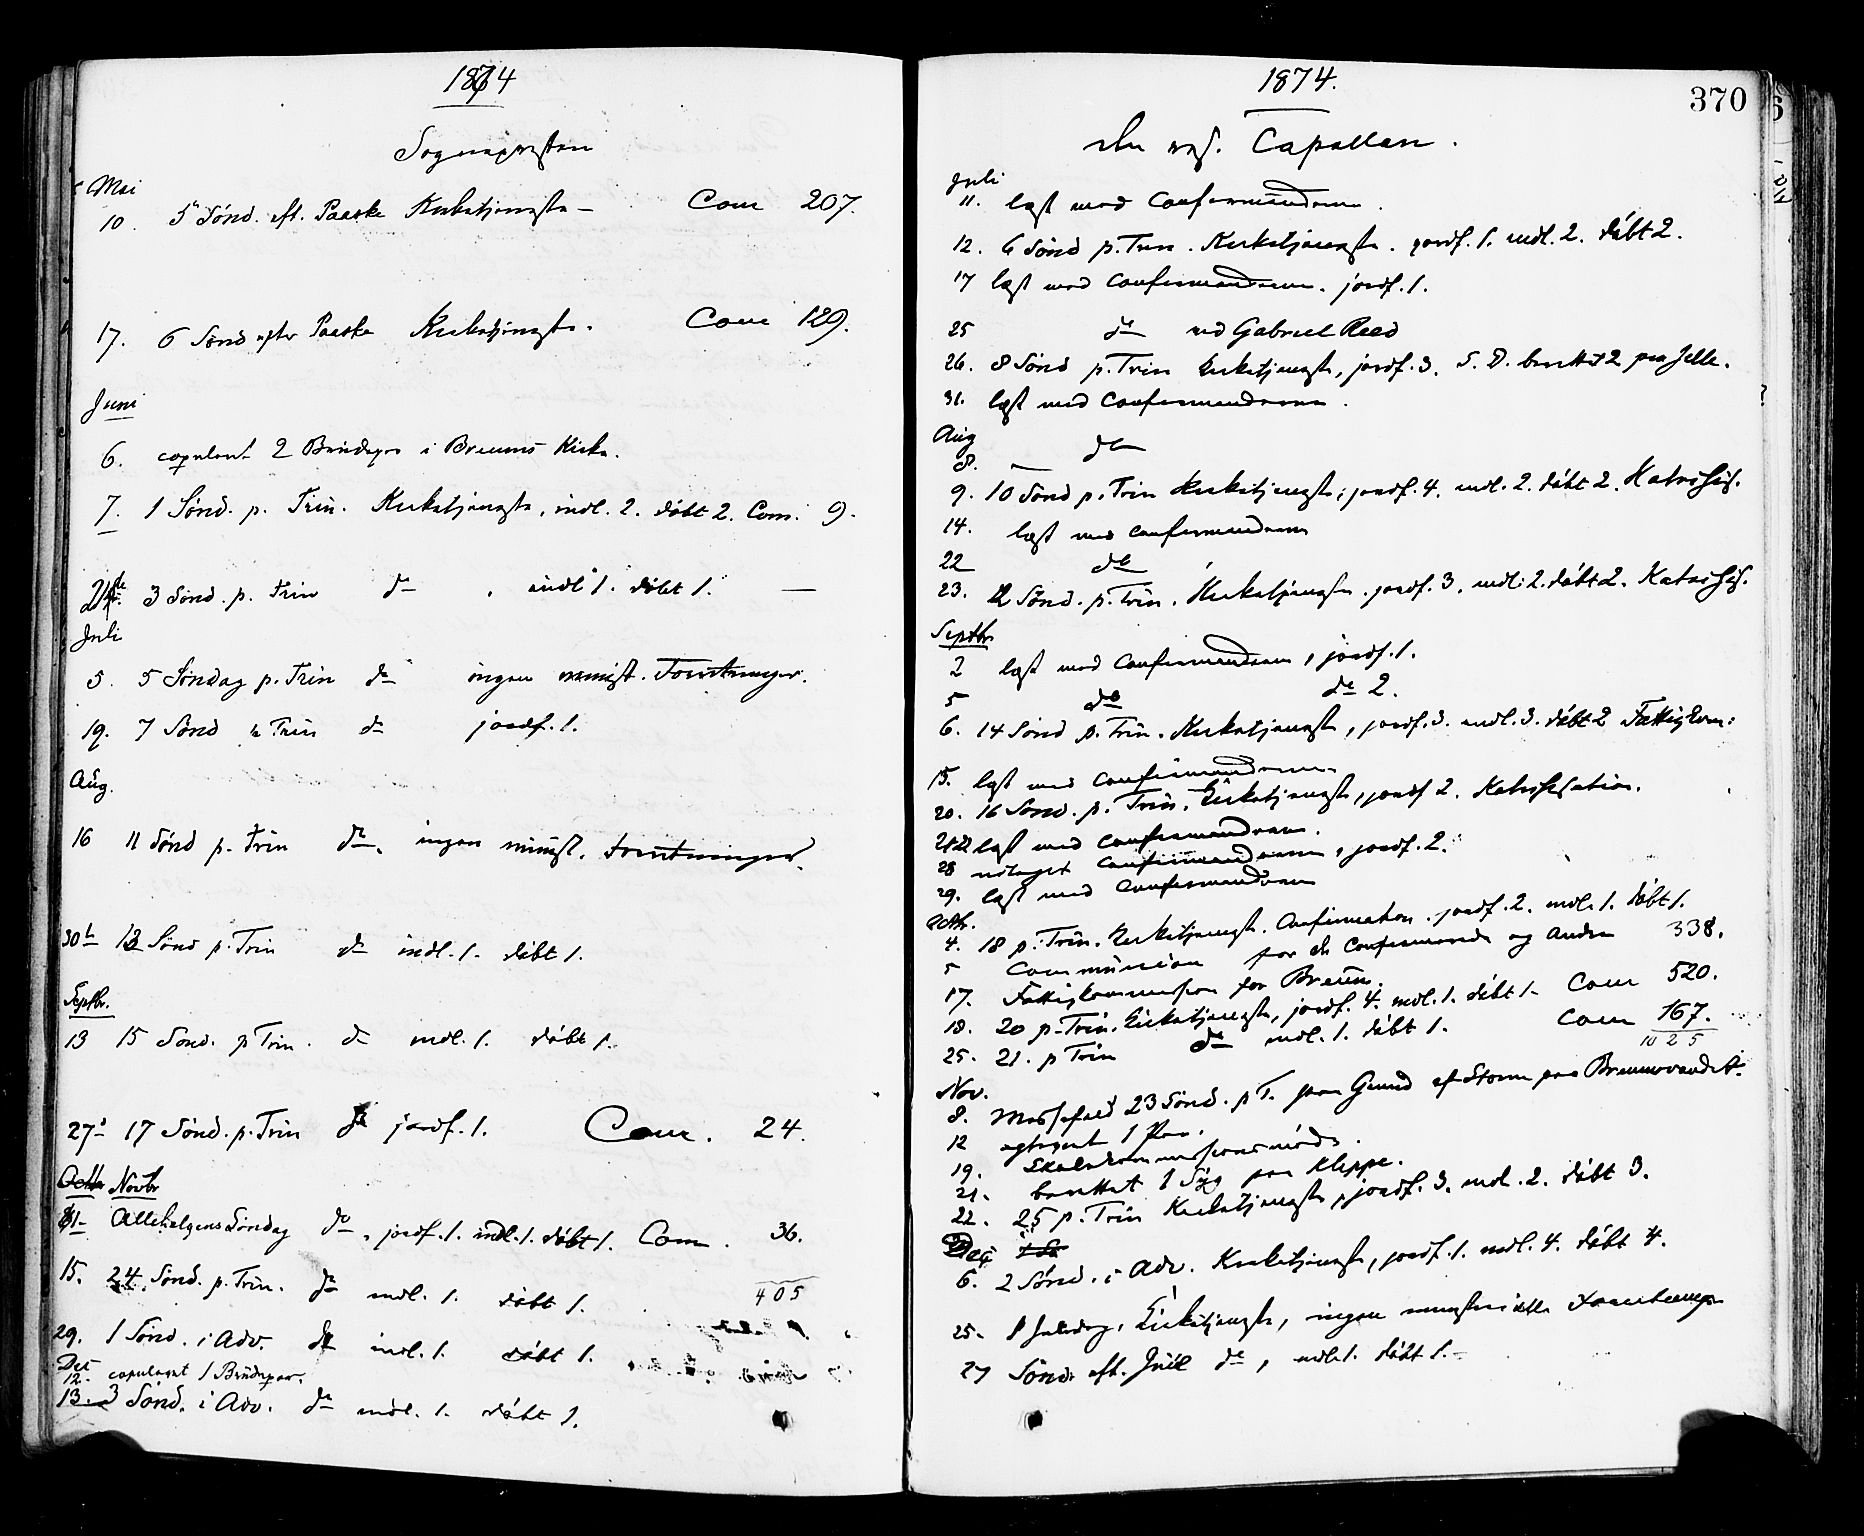 1874
Sognepresten
Mai
10. 5 Sønd. eft. Paaske Kirketjeneste – Com 207.
17. 6 Sønd efter Paaske Kirketjeneste. Com 129.
Juni
6. copuleret 2 Brudepar i Breums Kirke.
7. 1 Sønd. p. Trin. Kirketjeneste, indl. 2. døbt 2. Com. 9.
21de 3 Sønd. p. Trin do, indl 1. døbt 1. —
Juli
5. 5 Søndag p. Trin do ingen minist. Forretninger.
19. 7 Sønd p Trin do jordf. 1.
Aug.
16 11 Sønd p. Trin do. ingen minist. Forretninger.
30t 13 Sønd p. Trin do indl. 1. døbt 1.
Septbr.
13 15 Sønd. p Trin. do indl. 1. døbt 1.
27 17 Sønd. p. Trin do jordf. 1. Com. 24.
Octbr Novbr
1 Allehelgens Søndag do, jordf. 1. indl. 1. døbt 1. Com. 36.
405
15. 24 Sønd. p. Trin. do indl. 1. døbt 1.
29. 1 Sønd. i Adv. do indl. 1. døbt 1.
Dec
12. copuleret 1 Brudepar.
13. 3 Sønd. i Adv. do indl. 1. døbt 1.
1874.
370
den res. Capellan.
Juli
11. læst med Confirmanderne.
12. 6 Sønd p. Trin. Kirketjeneste. jordf. 1. indl. 2. døbt 2.
17 læst med Confirmanderne. jordf. 1.
25 do ved Gabriel Reed
26. 8 Sønd p. Trin Kirketjeneste, jordf. 3. S. D. berettet 2 paa
31. læst med Confirmanderne.
Aug
8. do
9. 10 Sønd p. Trin Kirketjeneste, jordf. 4. indl. 2. døbt 2. Katechis.
14. læst med Confirmanderne
22 do
23. 12 Sønd. p. Trin. Kirketjenesten. jordf. 3. indl. 2. døbt 2. Katechis.
Septbr
2 læst med Confirmanderne, jordf. 1.
5 do do 2.
6. 14 Sønd p. Trin. Kirketjeneste, jordf. 3. indl. 3. døbt 2 Fattigkom:
15. læst med Confirmanderne
20. 16 Sønd. p. Trin. Kirketjeneste, jordf 2. Katechisation.
læst med Confirmanderne.
28 udtaget Confirmanderne, jordf. 2.
29. læst med Confirmanderne
Octbr.
4. 18 p. Trin. Kirketjeneste. Confirmation. jordf. 2. indl. 1. døbt 1.
5 Communion for de Confirmerede og Andre 338.
17. Fattigkommission for Breum.
18. 20 p. Trin. Kirketjeneste, jordf. 4. indl. 1. døbt 1. Com 520.
25. 21. p Trin do indl. 1. døbt 1. Com 167.
1025
Nov.
8. Messefald 23 Sønd. p T. paa Grund af Storm paa Breumsvandet.
12 egteviet 1 Par.
19. Skolekommissionsmøde.
21. berettet 1 Syg paa Kleppe.
22. 25 p. Trin Kirketjeneste, jordf. 3. indl. 2. døbt 3.
Dec
6. 2 Sønd. i Adv. Kirketjeneste, jordf. 1. indl. 4. døbt 4.
25. 1 Juledag, Kirketjeneste, ingen ministerielle Forretninger
27 Sønd. eft. Juul do, indl. 1. døbt 1. –